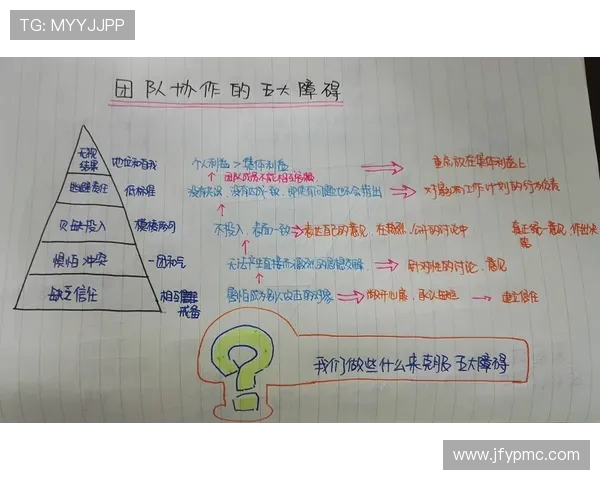 TG: MYYJJPP
团队协作的五大障碍
无视结果 地位和自我 个人利益 > 集体利益 重点放在集体利益上
团队成员不能相互
逃避责任 低标准 没有达成一致，即使有问题也不会指出 对影响工作计划的行为负责
欠缺投入 模棱两可 不投入，表面一致 表达自己的意见，在激烈、公开的讨论中 真正统一意见，作出决策
惧怕冲突 一团和气 无法产生直接而激烈的思想交锋 针对性的讨论、意见
缺乏信任 相互戒备 害怕成为别人攻击的对象 敞开心扉，承认缺陷 建立信任
我们做些什么来克服五大障碍
www.jfypmc.com